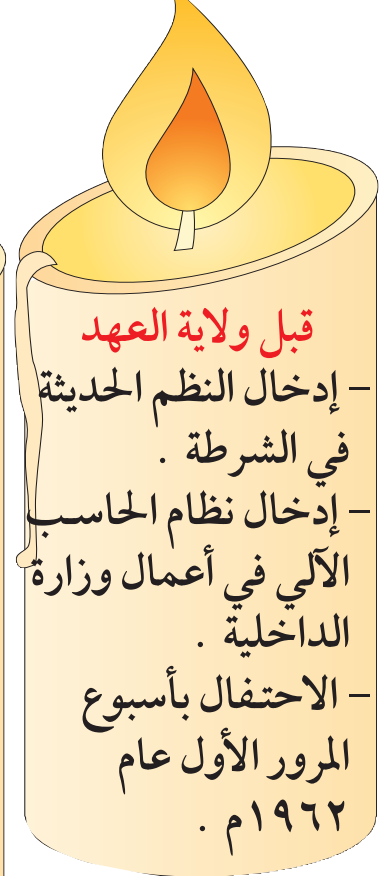 قبل ولاية العهد
– إدخال النظم الحديثة
في الشرطة .
– إدخال نظام الحاسب
الآلي في أعمال وزارة
الداخلية .
– الاحتفال بأسبوع
المرور الأول عام
١٩٦٢م .